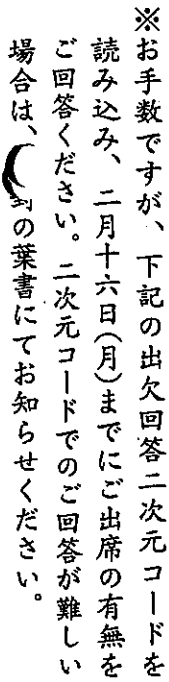 ※お手数ですが、下記の出欠回答二次元コードを
読み込み、二月十六日(月)までにご出席の有無を
ご回答ください。二次元コードでのご回答が難しい
場合は、の葉書にてお知らせください。